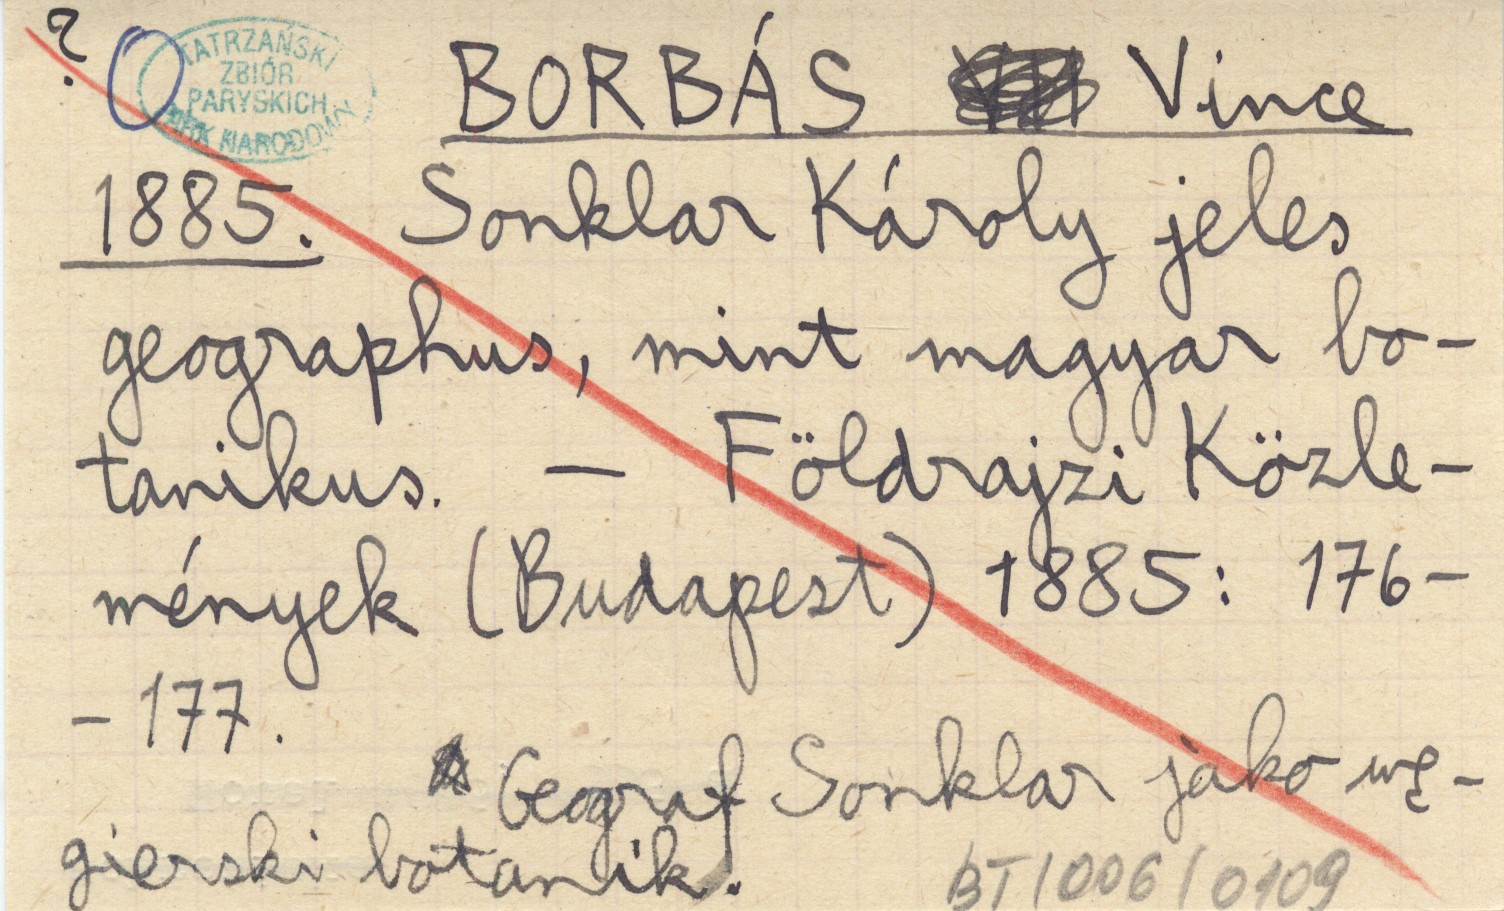 ?
TATRZAŃSKI
ZBIÓR
PARYSKICH
PARK NARODOWY
BORBÁS Vince
1885. Sonklar Károly jeles
geographus, mint magyar bo-
tanikus. — Földrajzi Közle-
mények (Budapest) 1885: 176-
- 177.
Geograf Sonklar jako wę-
gierski botanik.
BT/006/0109